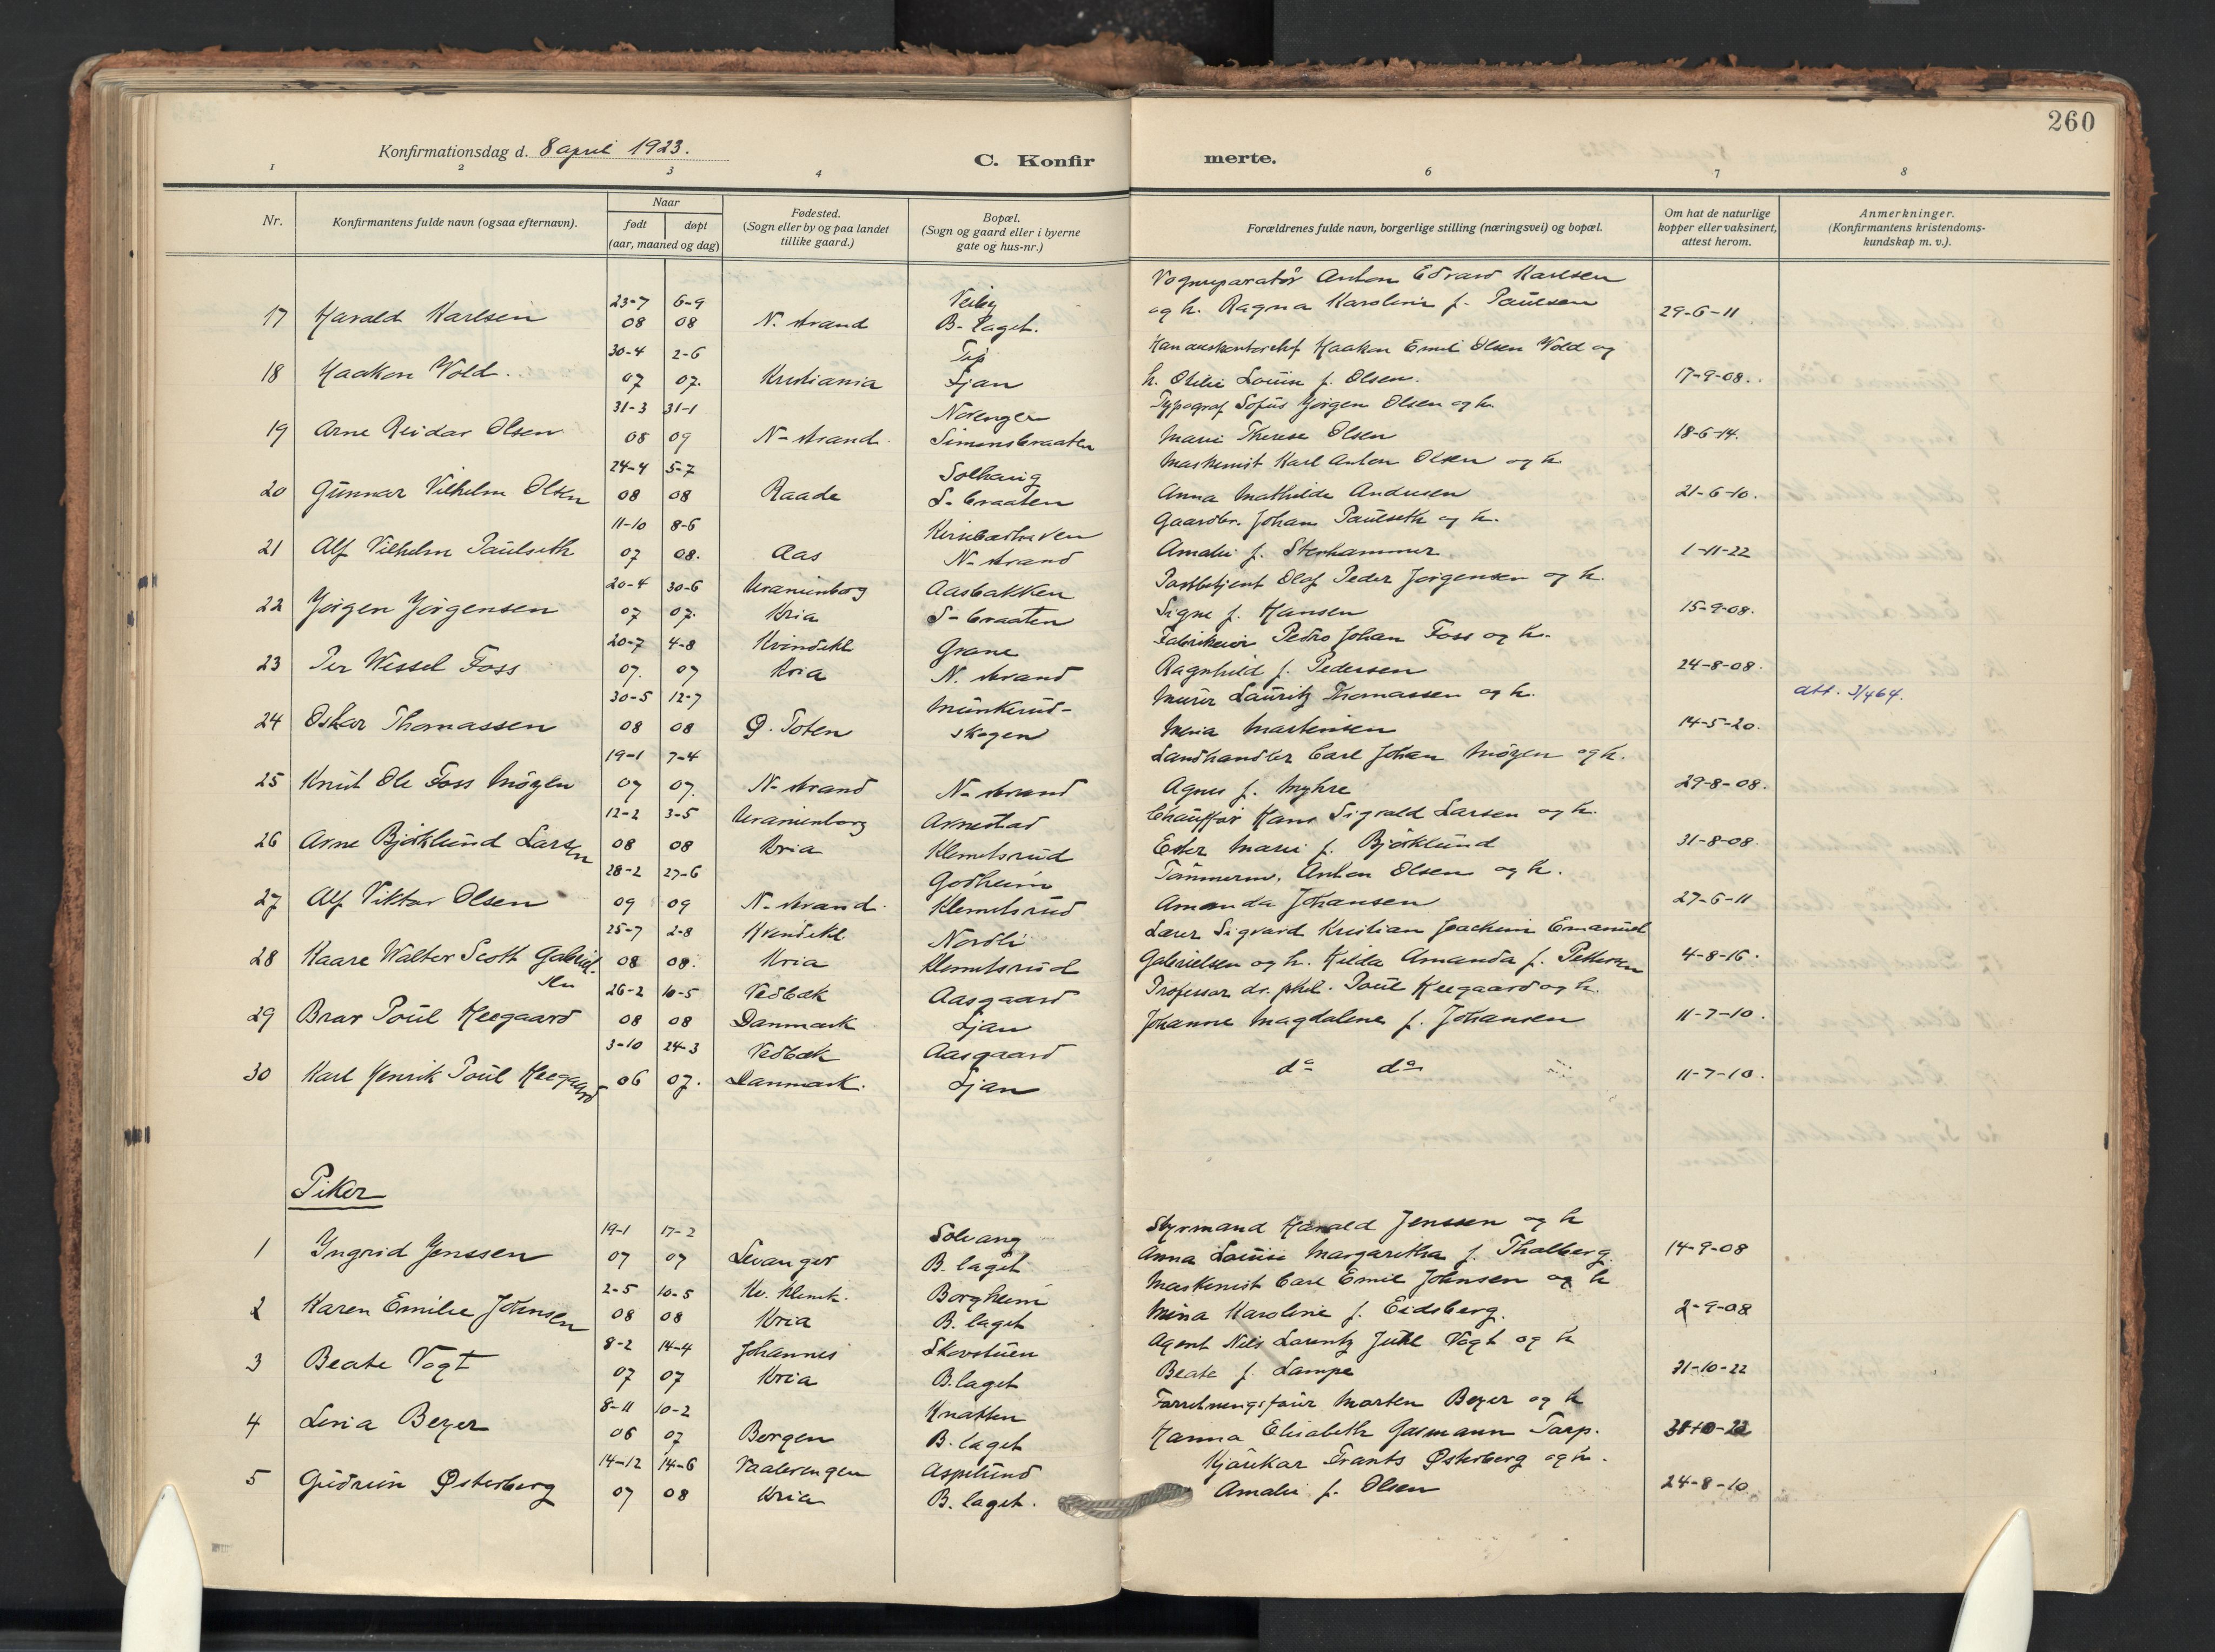 260
Konfirmationsdag d. 8 april 1923.
C. Konfirmerte.
1 2 3 4 6 7 8
Nr.
Konfirmantens fulde navn (ogsaa efternavn).
Naar
født døpt
(aar, maaned og dag)
Fødested.
(Sogn eller by og paa landet
tillike gaard.)
Bopæl.
(Sogn og gaard eller i byerne
gate og hus-nr.)
Forældrenes fulde navn, borgerlige stilling (næringsvei) og bopæl.
Om hat de naturlige
kopper eller vaksinert,
attest herom.
Anmerkninger.
(Konfirmantens kristendoms-
kundskap m. v.).
23-7 6-9 Veiby Vognreparatör Anton Edvard Karlsen
17 Harald Karlsen 08 08 N. strand B-laget. og h. Ragna Karoline f. Paulsen 29-6-11
30-4 2-6 Haakon Emil Olsen Vold og
18 Haakon Vold. 07 07. Kristiania Ljan h. Otilie Louise f. Olsen. 17-9-08.
31-3 31-1 Norengen Typograf Sofus Jörgen Olsen og h.
19 Arne Reidar Olsen 08 09 N-strand. Simensbraaten Marie Therese Olsen 18-6-14.
24-4 5-7 Solhaug Maskinist Karl Anton Olsen og h
20 Gunnar Vilhelm Olsen 08 08 Raade S-braaten Anna Mathilde Andresen 21-6-10.
11-10 8-6 Kirsebærhaven Gaardbr. Johan Paulseth og h.
21 Alf Vilhelm Paulseth 07 08. Aas N-strand Amalie f. Stenhammer 1-11-22
20-4 30-6 Uranienborg Aasbakken Postbetjent Olaf Peder Jörgensen og h.
22 Jörgen Jörgensen 07 07. Kria S-braaten Signe f. Hansen 15-9-08.
20-7 4-8 Kvindekl Grane Fabrikeier Pedro Johan Foss og h.
23 Per Wessel Foss 07. 07 Kria N. strand Ragnhild f. Pedersen 24-8-08.
30-5 12-7 Munkerud- Murer Lauritz Thomassen og h. att. 3/464.
24 Oskar Thomassen 08 08 Ø. Toten skogen Maria Martinsen 14-5-20.
19-1 7-4 Landhandler Carl Johan Mörzen og h.
25 Knut Ole Foss Mörzen 07 07. N-strand N-strand Agnes f. Myhre 29-8-08.
12-2 3-5 Uranienborg Arnestad Chauffør Hans Sigvald Larsen og h.
26 Arne Björklund Larsen 08 08 Kria Klemetsrud Ester Marie f. Björklund 31-8-08.
28-2 27-6 Godheim Tömmerm. Anton Olsen og h.
27 Alf Viktor Olsen 09 09 N-strand. Klemetsrud Amanda Johansen 27-6-11
25-7 2-8 Kvindekl. Nordli Lærer Sigvard Kristian Joachim Emanuel
28 Kaare Walter Scott Gabriel- 08 08. Kria Klemetsrud Gabrielsen og h. Hilda Amanda f. Pettersen 4-8-16.
sen 26-2 10-5 Vedbæk Aasgaard Professor dr. phil. Poul Heegaard og h.
29 Brar Poul Heegaard 08 08 Danmark Ljan Johanne Magdalene f. Johansen 11-7-10.
3-10 24-3 Vedbæk Aasgaard
30 Karl Henrik Poul Heegaard 06 07. Danmark. Ljan do do 11-7-10.
Piker
19-1 17-2 Solvang Styrmand Harald Jenssen og h
1 Yngrid Jenssen 07 07 Levanger B. laget Anna Louise Margaretha f. Thalberg. 14-9-08
2-5 10-5 Kv. klinik. Borgheim Maskinist Carl Emil Johnsen og h
2 Karen Emilie Johnsen 08 08 Kria B. laget Mina Karoline f. Eidsberg. 2-9-08
8-2 14-4 Johannes Skovstuen Agent Nils Lorentz Juhl Vogt og h
3 Beate Vogt 07 07 Kria B. laget Beate f. Lampe 31-10-22
8-11 10-2 Knatten Forretningsfører Morten Beyer og h
4 Livia Beyer 06 07 Bergen B. laget Hanna Elisabeth Gasmann Tarp.
14-12 14-6 Vaalerengen Aspelund Gjörtler Frants Østerberg og h.
5 Gudrun Østerberg 07 08 Kria B. laget. Amalie f. Olsen 24-8-10